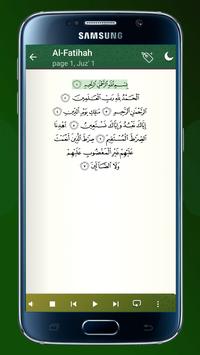 SAMSUNG
Al-Fatihah
page 1, Juz' 1
بِسْمِ اللَّهِ الرَّحْمَٰنِ الرَّحِيمِ ۝١
الْحَمْدُ لِلَّهِ رَبِّ الْعَالَمِينَ ۝٢
الرَّحْمَٰنِ الرَّحِيمِ ۝٣ مَالِكِ يَوْمِ الدِّينِ ۝٤
إِيَّاكَ نَعْبُدُ وَإِيَّاكَ نَسْتَعِينُ ۝٥ اهْدِنَا
الصِّرَاطَ الْمُسْتَقِيمَ ۝٦ صِرَاطَ الَّذِينَ أَنْعَمْتَ
عَلَيْهِمْ غَيْرِ الْمَغْضُوبِ عَلَيْهِمْ
وَلَا الضَّالِّينَ ۝٧